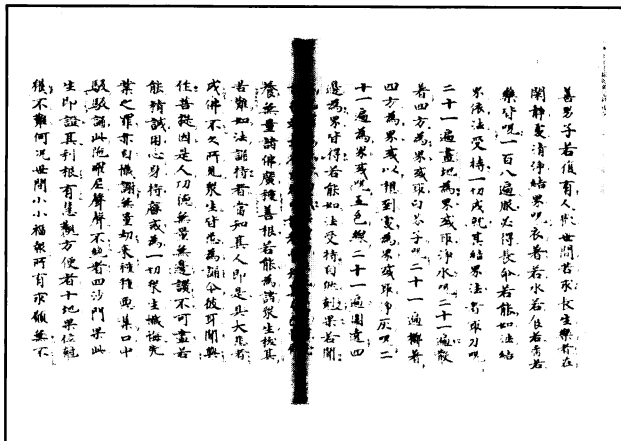 善男子若復有人於世間苦求長生樂者在
閑静處清淨結界呪衣著若水若食若香若
藥皆呪一百八遍服必得長命若能如法結
界依法受持一切成就其結界法者取刀呪
二十一遍畫地為界或取淨水呪二十一遍散
著四方為界或取白芥子呪二十一遍擲著
四方為界或以想到處為界或取淨灰呪二
十一遍為界或呪五色線二十一遍圍遶四
邊為界皆得若能如法受持自然剋果若聞
養無量諸佛廣種善根若能為諸衆生拔其
苦難如法誦持者當知其人即是具大悲者
成佛不久所見衆生皆悉為誦令彼耳聞與
作菩提因是人功德無量無邊讚不可盡若
能精誠用心身持齋戒為一切衆生懺悔先
業之罪亦自懺謝無量劫來種種惡業口中
馺馺誦此陁羅尼聲聲不絶者四沙門果此
生即證其利根有慧觀方便者十地果位剋
獲不難何況世間小小福報所有求願無不